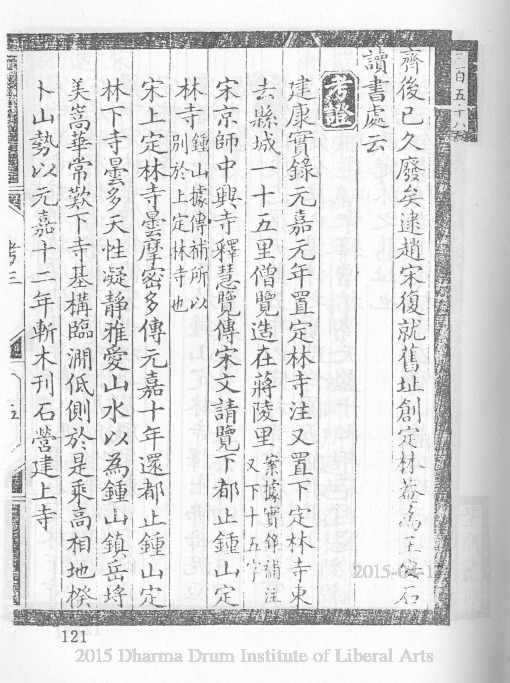 齊後已久廢矣逮趙宋復就舊址創定林菴為王安石
讀書處云
考證
建康實錄元嘉元年置定林寺注又置下定林寺東
去縣城一十五里僧覽造在蔣陵里案據實錄補注又下十五字
宋京師中興寺釋慧覽傳宋文請覽下都止鍾山定
林寺鍾山據傳補所以別於上定林寺也
宋上定林寺曇摩密多傳元嘉十年還都止鍾山定
林下寺曇多天性凝靜雅愛山水以為鍾山鎮岳埒
美嵩華常歎下寺基構臨澗低側於是乘高相地揆
卜山勢以元嘉十二年斬木刊石營建上寺
考三
五
121
2015 Dharma Drum Institute of Liberal Arts